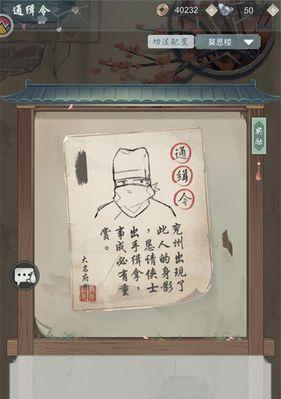 通缉令
40232
50
功法配置
莫思楼
奖励
通缉令
兖州出现了
此人的身影
，恳请侠士
出手缉拿，
事成必有重
赏。
大名府